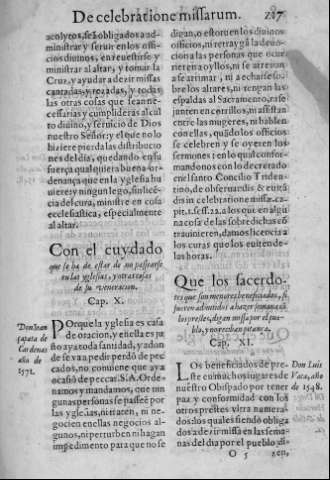 De celebratione missarum. 217
acolytos, será obligados a ad-
ministrar y seruir en los offi-
cios diuinos, en reuestirse y
ministrar al altar, y tomar la
Cruz, y ayudar a dezir missas
cantadas, y rezadas, y todas
las otras cosas que sean ne-
cessarias y cumplideras al cul
to diuino, y seruicio de Dios
nuestro Señor: y el que no lo
hiziere pierda las distribucio
nes del dia, quedando en su
fuerça qualquiera buena or-
denança que en la yglesia hu
uiere: y ningun lego, sin licē-
cia del cura, ministre en cosa
ecclesiastica, especialmente
al altar.
Con el cuydado
que se ha de estar de no passearse
en las yglesias, y otras cosas
de su veneracion.
Cap. X.
Don Iuan
çapata de
Cardenas
año de
1571.
Porque la yglesia es casa
de oracion, y en ella es pa
sto ayatoda sanctidad, y adon
de se va a pedir perdō de pec
cados, no conuiene que aya
ocasiō de peccar. S.A. Orde-
namos y mandamos, que nin
gunas personas se passeē por
las yglesias, ni traten, ni ne-
gocien en ellas negocios al
gunos, ni perturben ni hagan
impedimento para que no se
digan, o estoruen los diuinos
officios, ni retrayga la deuo-
cion a las personas que ocur
rieren a oyllos, ni se atreuan
a se arrimar, ni a echarse so-
bre los altares, ni tengan las
espaldas al Sacramento, ni se
junten en corrillos, ni assistan
entre las mugeres, ni hablen
con ellas, quādo los officios
se celebren y se oyeren los
sermones: en lo qual confor-
mandonos con lo decretado
en el sancto Concilio Triden
tino, de obseruandis & euitā
dis in celebratione missæ. ca-
pit. 1. ses. 22. a los que en algu
na cosa de las sobredichas cō
trauinieren, damos licencia a
los curas que los euiten de
las horas.
Que los sacerdo-
tes que son menores beneficiados, si
fueren admitidos a hazer semana cō
los prestes, digan missa por el pue-
blo, y no reciban pitança.
Cap. XI.
Los beneficiados de pre-
ste en muchos lugares de
nuestro Obispado por tener
paz y conformidad con los
otros prestes vltra numera-
dos: los quales siendo obliga
dos a dezir missa en las sema-
nas del dia por el pueblo, di-
Don Luis
Vaca, año
de 1548.
O 5 zen,